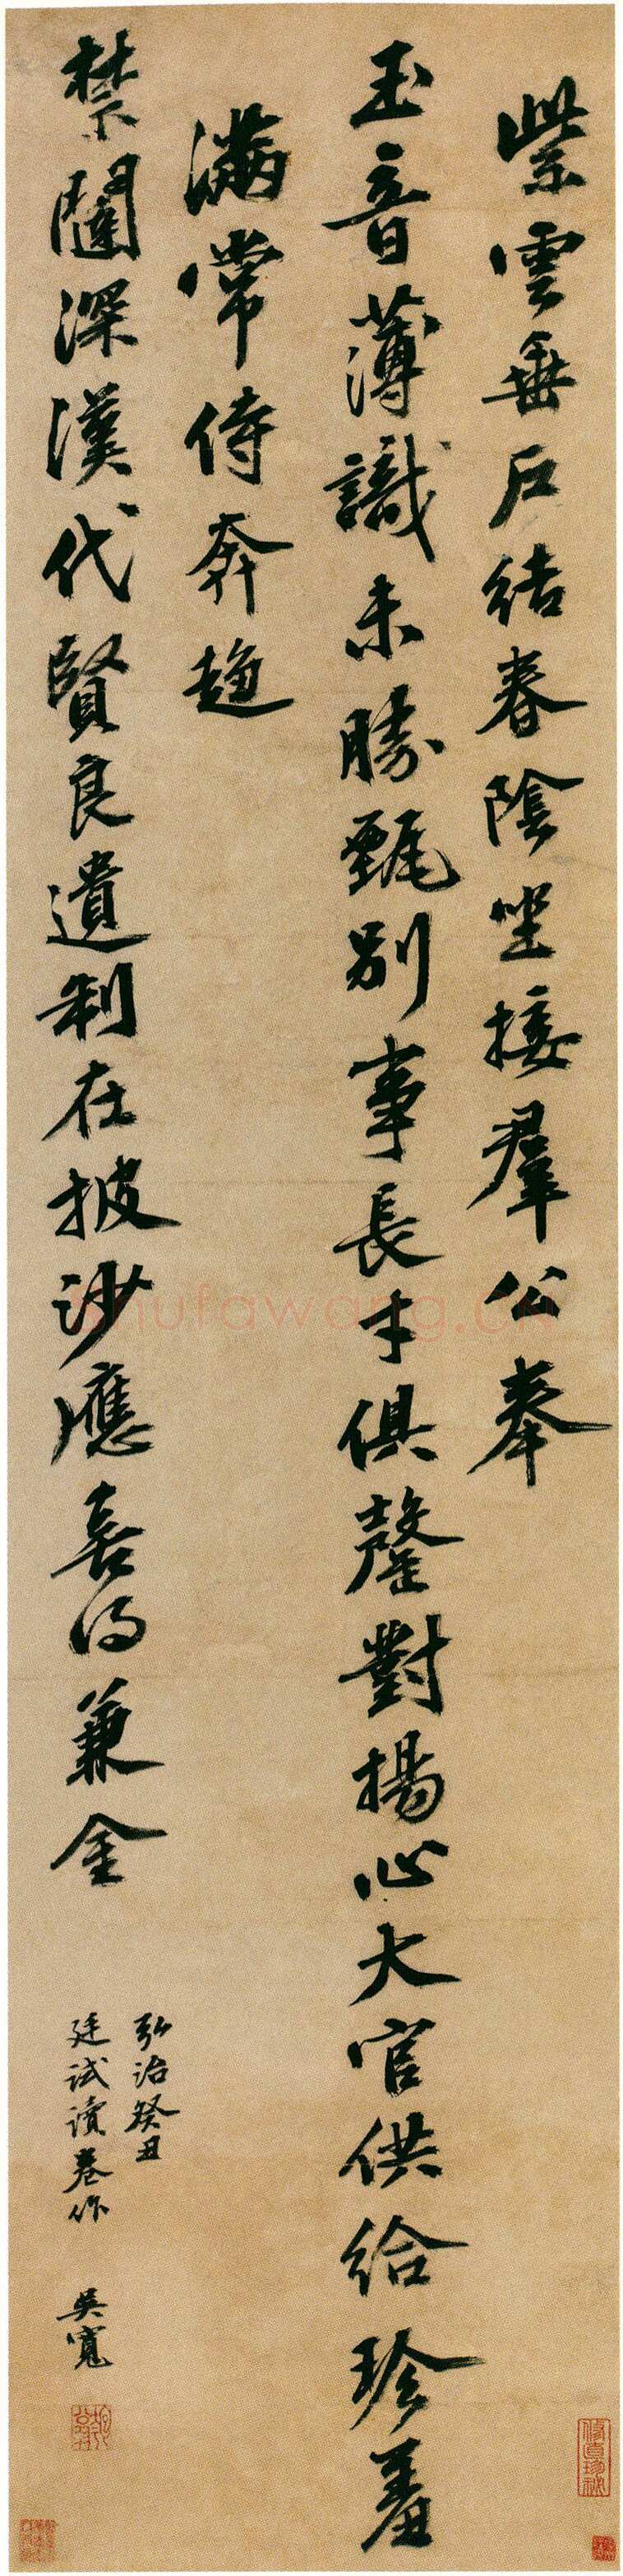 紫雲垂戶結春陰坐接羣公奉
玉音薄識未勝甄別事長才俱罄對揚心大官供給珍羞
滿常侍奔趨
禁闥深漢代賢良遺制在披沙應喜得兼金
弘治癸丑
廷試讀卷作
吳寬
shufawang.CN